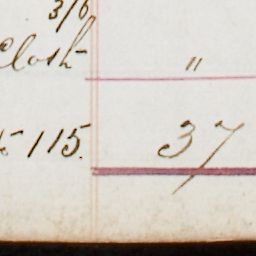 3/6
Cloth "
115. 37